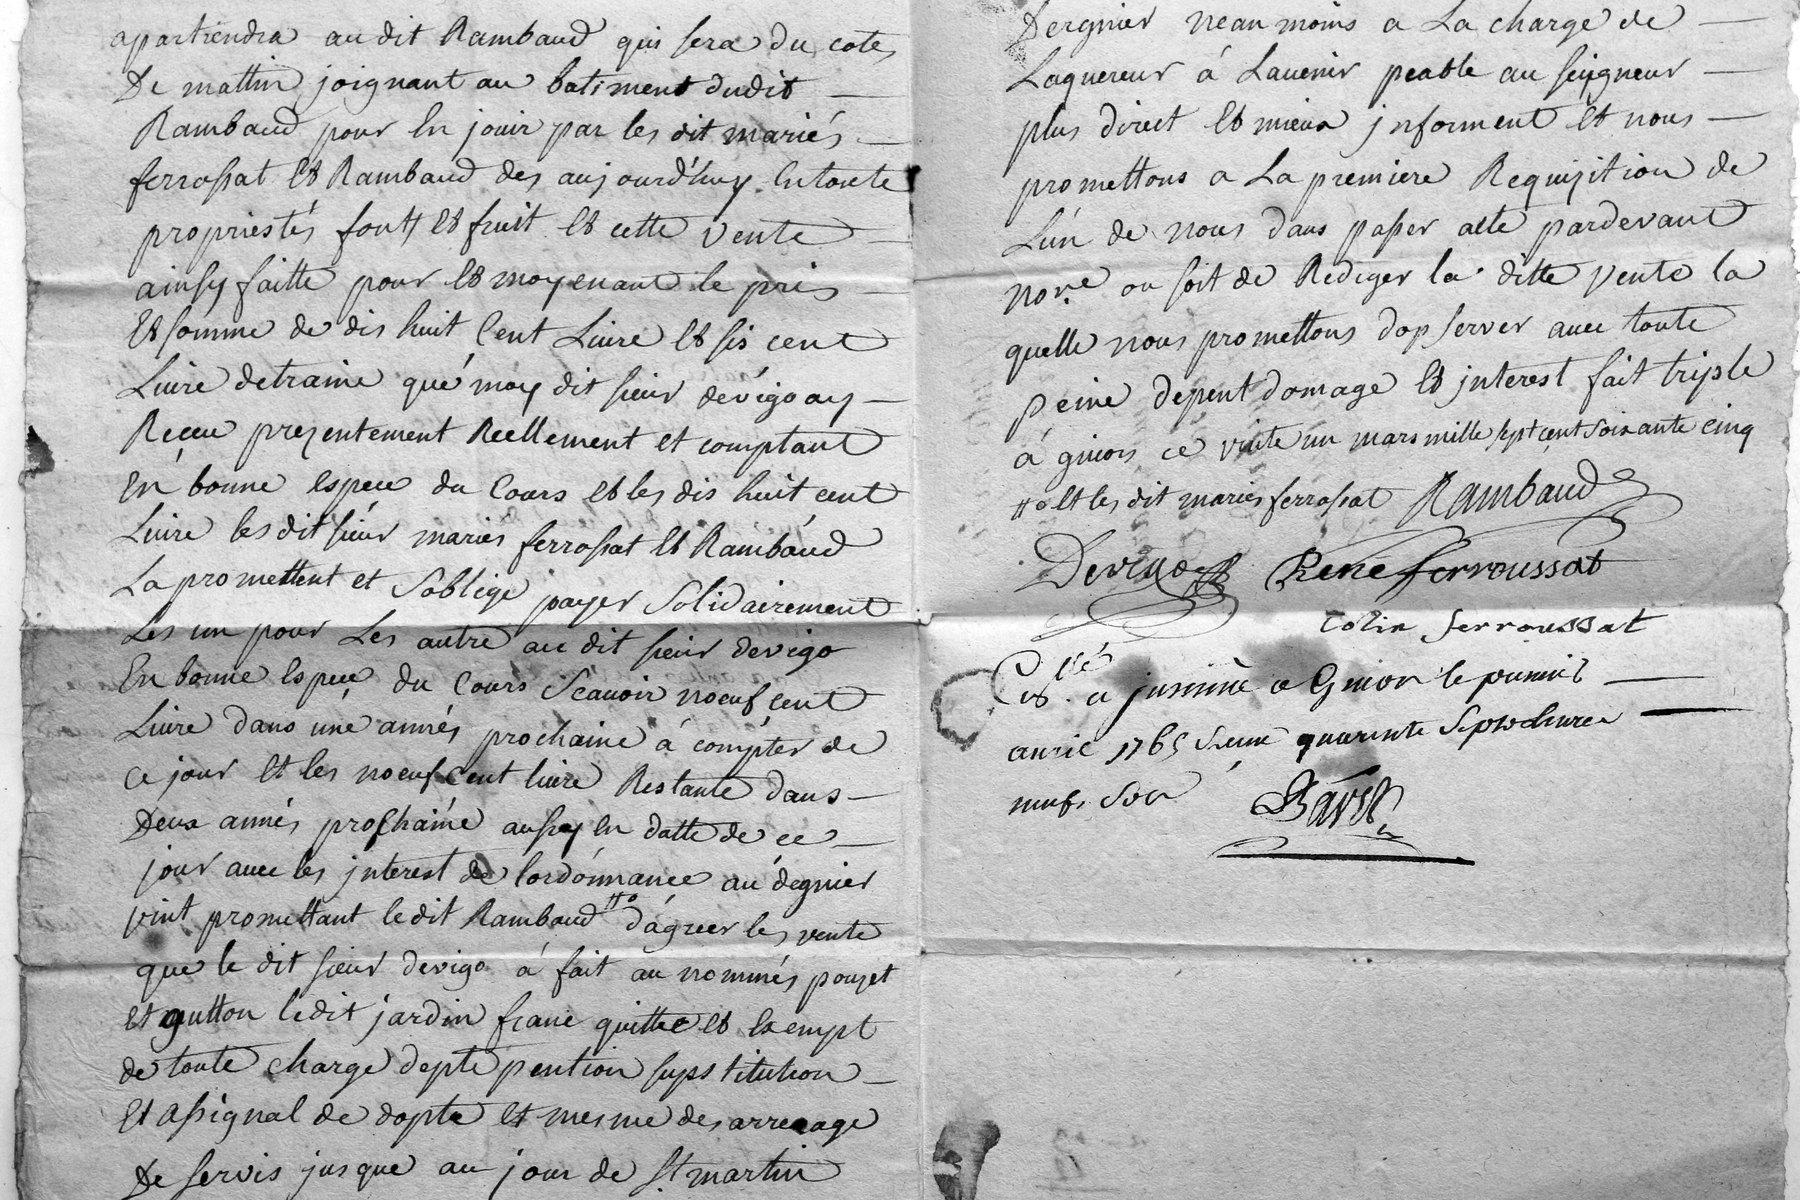 apartiendra au dit Rambaud qui sera du cotes
De mattin joignant au batiment dudit
Rambaud pour En jouir par les dit mariés
ferrossat Et Rambaud des aujourd'huy En toute
propriestés font Et fruit Et cette vente
ainsy faitte pour Et moyenant le pris
Et somme de dis huit Cent Livre Et sis cent
Livre detraine qué moy dit sieur devigo ay
Receu prezentement Reellement et comptant
En bonne Espece du Cours Et les dis huit cent
Livre les dit sieur mariés ferrossat Et Rambaud
La promettent et Soblige payer Solidairement
Les un pour Les autre au dit sieur devigo
En bonne Espece du Cours Scauoir noeuf cent
Livre dans une annés prochaine á compter de
ce jour Et les noeuf Cent livre Restante dans
Deux annés prochaine aussy En datte de ce
jour avec les jnterest de lordonnance au degnier
vint promettant ledit Rambaud #o dágreer les vente
que le dit sieur devigo á fait au nommés pouzet
et gutton ledit jardin franc quitte et Exempt
de toute charge depte pention supstitution
Et assignal de dopte et mesme des arrerage
De servis jusque au jour de St martin
Dergnier neanmoins a La charge de
Laquereur á Lauenir peable au seigneur
plus direct Et mieux jnforment Et nous
promettons a La premiere Requizition de
Lún de nous dans passer acte pardevant
nore ou soit de Rediger la ditte vente la
quelle nous promettons dopserver avec toute
peine depent domage Et jnterest fait triple
á givors ce vinte un mars mille sept cent soixante cinq
#o Et les dit mariés ferrossat Rambaud
Devigo René ferroussat
Colin ferroussat
a Givor le premier
avril 1765 quarante Sept
neuf Sols